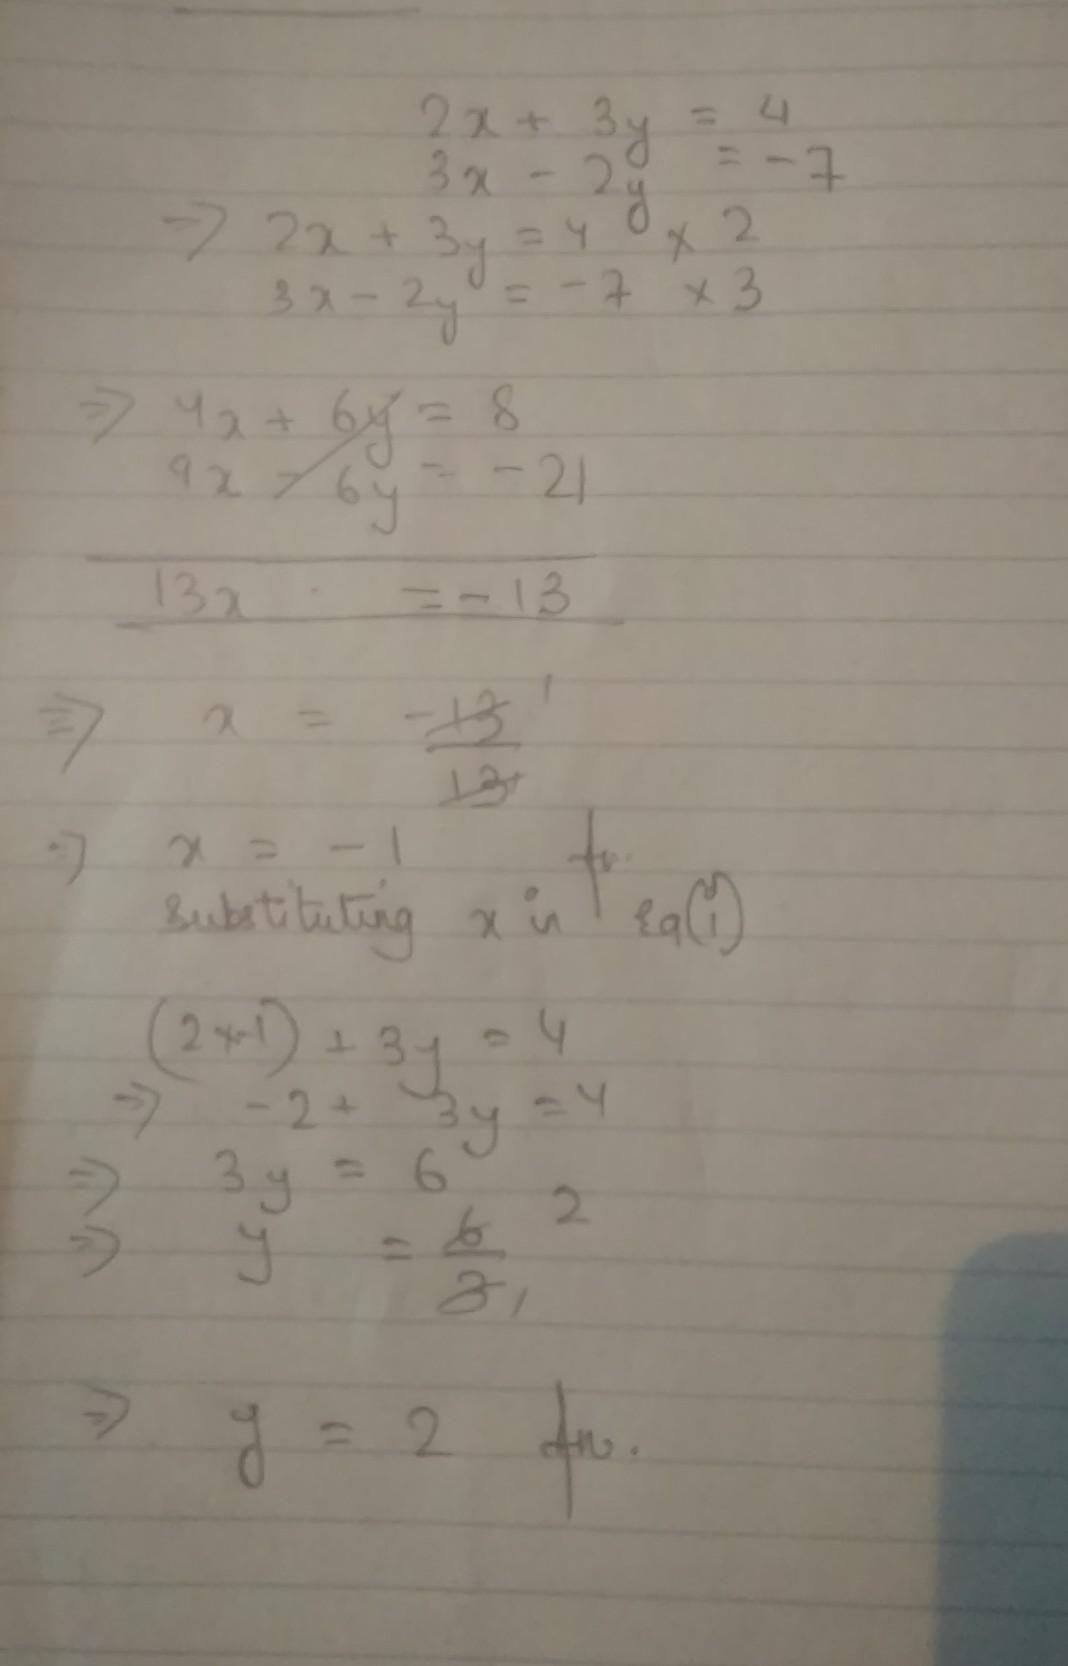 2x + 3y = 4
3x - 2y = -7
=> 2x + 3y = 4 × 2
3x - 2y = -7 × 3
=> 4x + 6y = 8
9x - 6y = -21
13x = -13
=> x = -13/13 1
=> x = -1 Ans.
substituting x in Eq(1)
(2×-1) + 3y = 4
=> -2 + 3y = 4
=> 3y = 6
=> y = 6/3 2 1
=> y = 2 Ans.